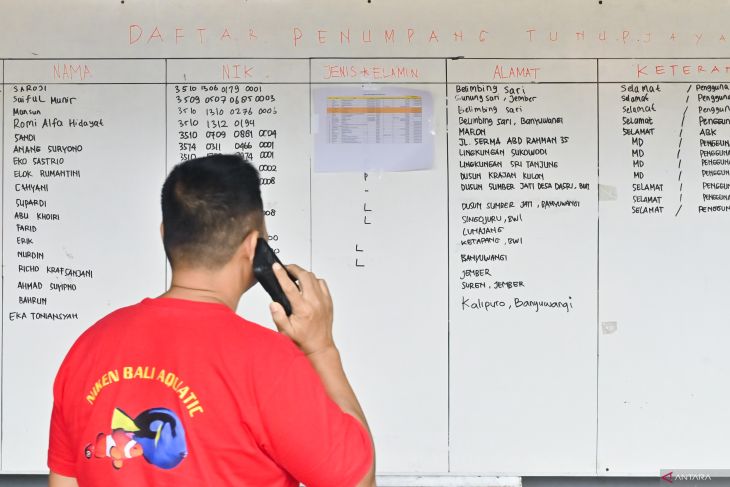 DAFTAR PENUMPANG TUNU.P.JAYA
NAMA NIK JENIS KELAMIN ALAMAT KETERA
SARODI 3510 1306 0179 0001 Belimbing Sari Selamat / Pengguna
Saiful Munir 3509 0507 0685 0003 Gunung sari, Jember Selamat / Penggun
Mansun 3510 1310 0276 Belimbing sari Selamat / Penggun
Romi Alfa Hidayat 3510 1312 0194 Belimbing sari, Banyuwangi Selamat / Penggun
SANDI 3510 0709 0881 0004 MARON SELAMAT / ABK
ANANG SURYONO 3574 0311 0466 0001 JL. SERMA ABD RAHMAN 35 MD / PENGGUN
EKO SASTRIO 0001 LINGKUNGAN SUKOWIDI MD / PENGGUN
ELOK RUMANTINI 0002 LINGKUNGAN SRI TANJUNG MD / PENGGUN
CAHYANI 0008 P DUSUN KRAJAN KULON MD / PENGGUN
SUPARDI - DUSUN SUMBER JATI DESA SELAMAT / PENGGUN
ABU KHOIRI 08 L DUSUN SUMBER JATI, BANYUWANGI SELAMAT / PENGGUN
FARID L SINGOJURU, BWI SELAMAT / PENGGUN
ERIK 00 LUMAJANG
NURDIN L KETAPANG, BWI
RICHO L BANYUWANGI
AHMAD SUYIPNO JEMBER
BAHRUN SUREN, JEMBER
EKA TONIANSYAH Kalipuro, Banyuwangi
NIKEN BALI AQUATIC
ANTARA